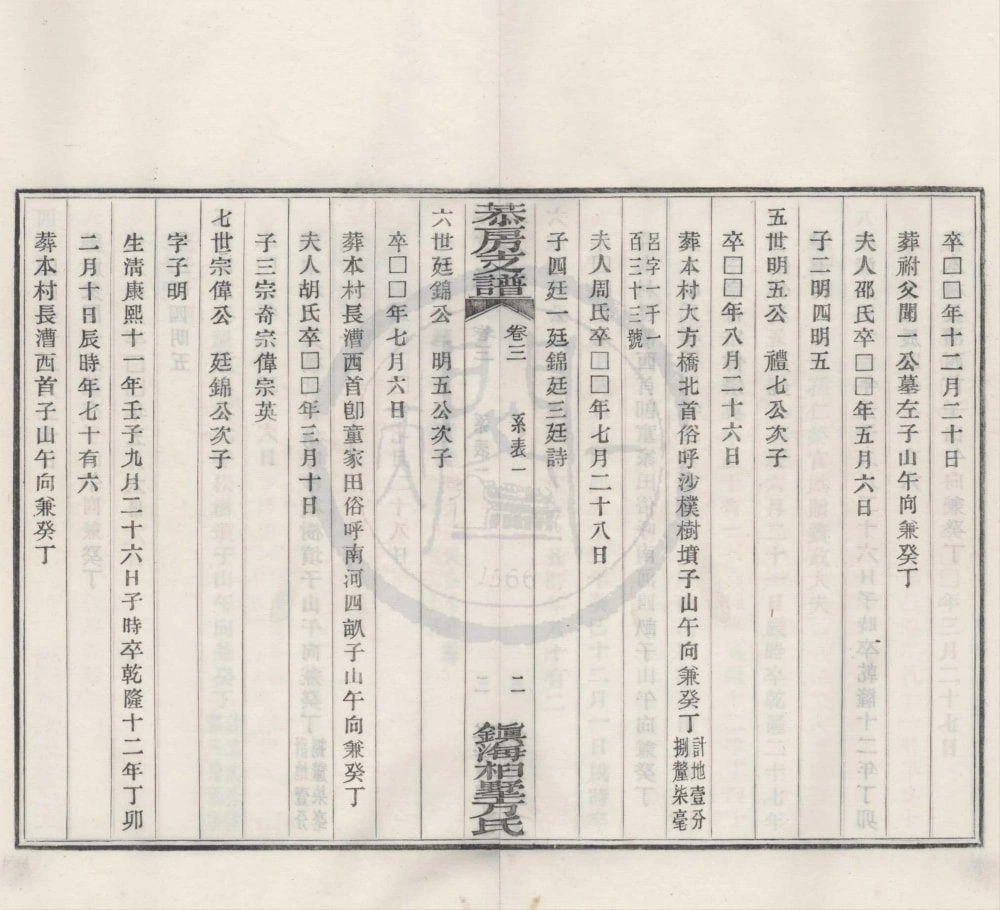 卒□□年十二月二十日
葬祔父聞一公墓左子山午向兼癸丁
夫人邵氏卒□□年五月六日
子二明四明五
五世明五公 禮七公次子
卒□□年八月二十六日
葬本村大方橋北首俗呼沙樸樹墳子山午向兼癸丁計地壹分捌釐柒毫
呂字一千一百三十三號
夫人周氏卒□□年七月二十八日
子四廷一廷錦廷三廷詩
恭房支譜 卷三 系表一 二 鎮海柏墅方氏
六世廷錦公 明五公次子
卒□□年七月六日
葬本村長漕西首卽童家田俗呼南河四畝子山午向兼癸丁
夫人胡氏卒□□年三月十日
子三宗奇宗偉宗英
七世宗偉公 廷錦公次子
字子明
生淸康熙十一年壬子九月二十六日子時卒乾隆十二年丁卯
二月十日辰時年七十有六
葬本村長漕西首子山午向兼癸丁